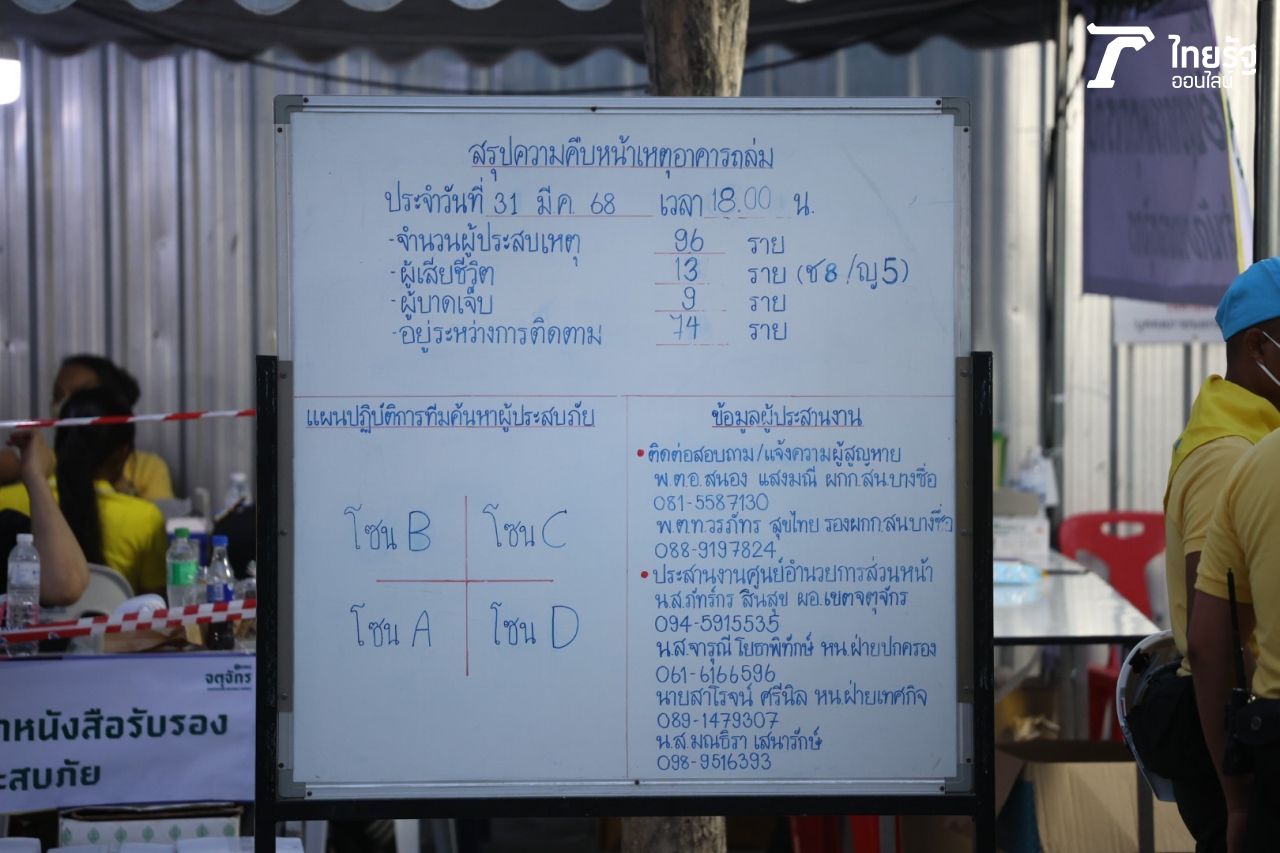 ไทยรัฐ
ออนไลน์
สรุปความคืบหน้าเหตุอาคารถล่ม
ประจำวันที่ 31 มี.ค. 68 เวลา 18.00 น.
-จำนวนผู้ประสบเหตุ 96 ราย
-ผู้เสียชีวิต 13 ราย (ช8/ญ5)
-ผู้บาดเจ็บ 9 ราย
-อยู่ระหว่างการติดตาม 74 ราย
แผนปฏิบัติการทีมค้นหาผู้ประสบภัย
โซน B โซน C
โซน A โซน D
ข้อมูลผู้ประสานงาน
•ติดต่อสอบถาม/แจ้งความผู้สูญหาย
พ.ต.อ.สนอง แสงมณี ผกก.สน.บางซื่อ
081-5587130
พ.ต.ท.วรภัทร สุขไทย รองผกก.สน.บางซื่อ
088-9197824
•ประสานงานศูนย์อำนวยการส่วนหน้า
น.ส.ภัทร์กร สินสุข ผอ.เขตจตุจักร
094-5915535
น.ส.จารุณี โยธาพิทักษ์ หน.ฝ่ายปกครอง
061-6166596
นายสาโรจน์ ศรีนิล หน.ฝ่ายเทศกิจ
089-1479307
น.ส.มณธิรา เสนารักษ์
098-9516393
จตุจักร
หนังสือรับรอง
ะสบภัย